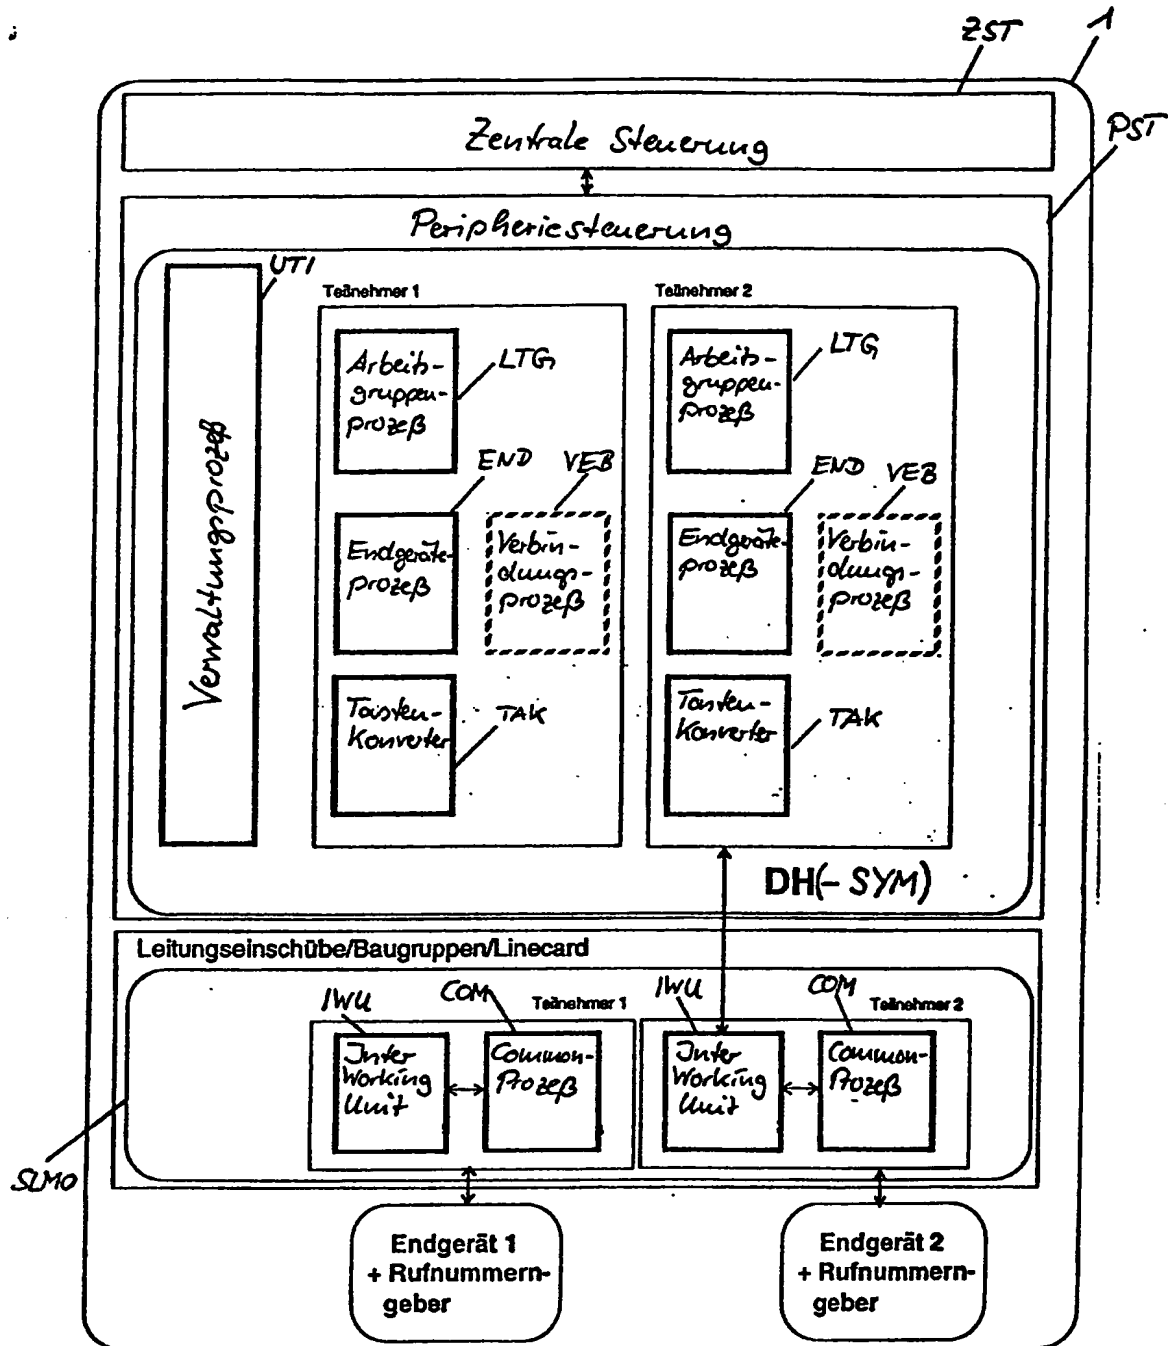 ZST
1
Zentrale Steuerung
PST
Peripheriesteuerung
UTI
Verwaltungsprozeß
Teilnehmer 1
Arbeits-
gruppen-
prozeß
LTG
END
VEB
Endgeräte-
prozeß
Verbin-
dungs-
prozeß
Tasten-
Konverter
TAK
Teilnehmer 2
Arbeits-
gruppen-
prozeß
LTG
END
VEB
Endgeräte-
prozeß
Verbin-
dungs-
prozeß
Tasten-
Konverter
TAK
DH(- SYM)
Leitungseinschübe/Baugruppen/Linecard
IWU
COM
Teilnehmer 1
Inter
Working
Unit
Common-
Prozeß
IWU
COM
Teilnehmer 2
Inter
Working
Unit
Common-
Prozeß
SLMO
Endgerät 1
+ Rufnummern-
geber
Endgerät 2
+ Rufnummern-
geber